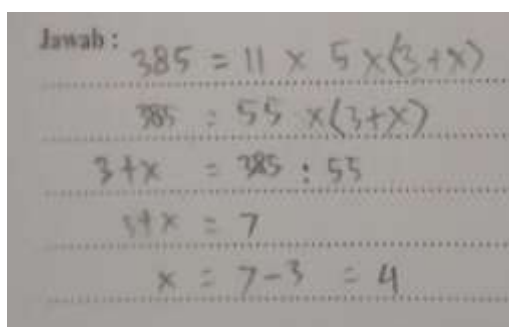 Jawab :
385 = 11 x 5 x(3+x)
385 = 55 x(3+x)
3+x = 385 : 55
3+x = 7
x = 7-3 = 4